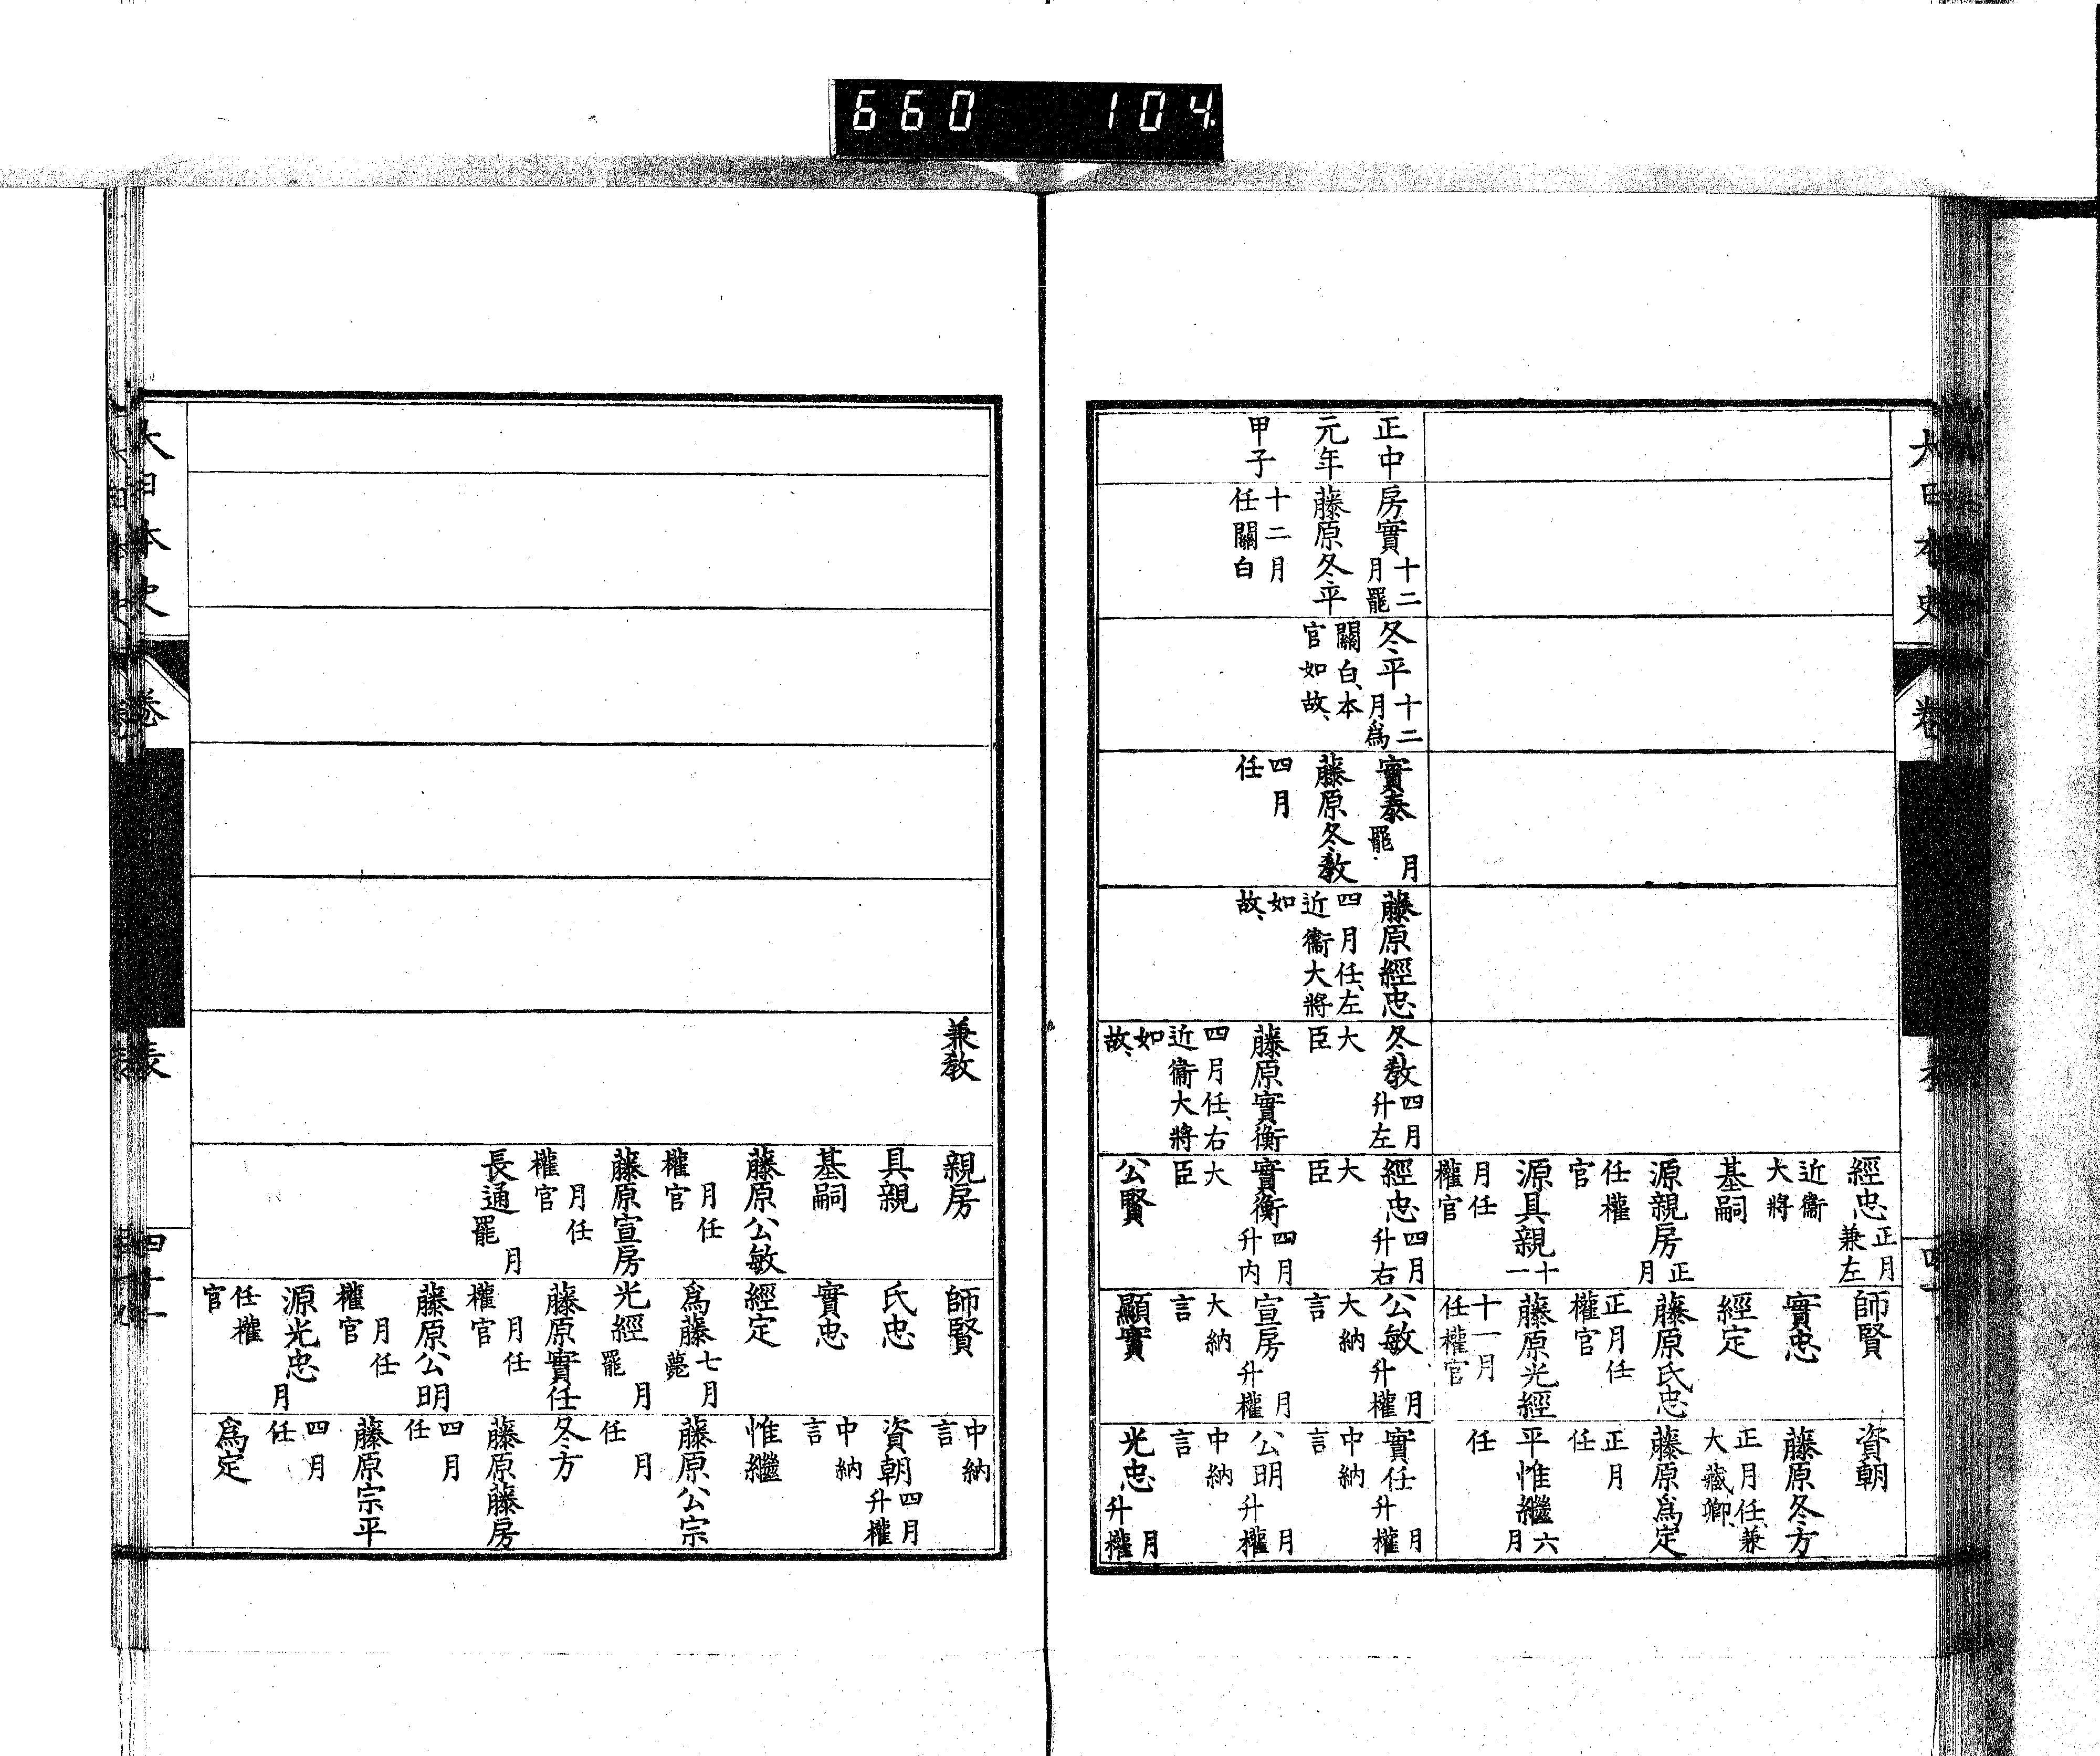 660 104
大日本史
卷
經忠正月兼左
近衞大將
基嗣
源親房正月
任權官
源具親十一
月任權官
師賢
實忠
經定
藤原氏忠
正月任權官
藤原光經
十一月任權官
資朝
藤原冬方
正月任、兼大藏卿、
藤原爲定
正月任
平惟繼六月
任
正中
元年
甲子
房實十二月罷
藤原冬平
十二月任關白
冬平十二月爲
關白、本官如故、
實泰月罷
藤原冬敎
四月任
藤原經忠
四月任、左近衞大將
如故、
冬敎四月升左
大臣
藤原實衡
四月任、右近衞大將
如故、
經忠四月升右
大臣
實衡四月升內
大臣
公賢
公敏月升權
大納言
宣房月升權
大納言
顯實
實任月升權
中納言
公明月升權
中納言
光忠月升權
兼敎
親房
具親
基嗣
藤原公敏
月任權官
藤原宣房
月任權官
長通月罷
師賢
氏忠
實忠
經定
爲藤七月薨
光經月罷
藤原實任
月任權官
藤原公明
月任權官
源光忠月
任權官
中納言
資朝四月升權
中納言
惟繼
藤原公宗
月任
冬方
藤原藤房
四月任
藤原宗平
四月任
爲定
大日本史
卷
表
四十一